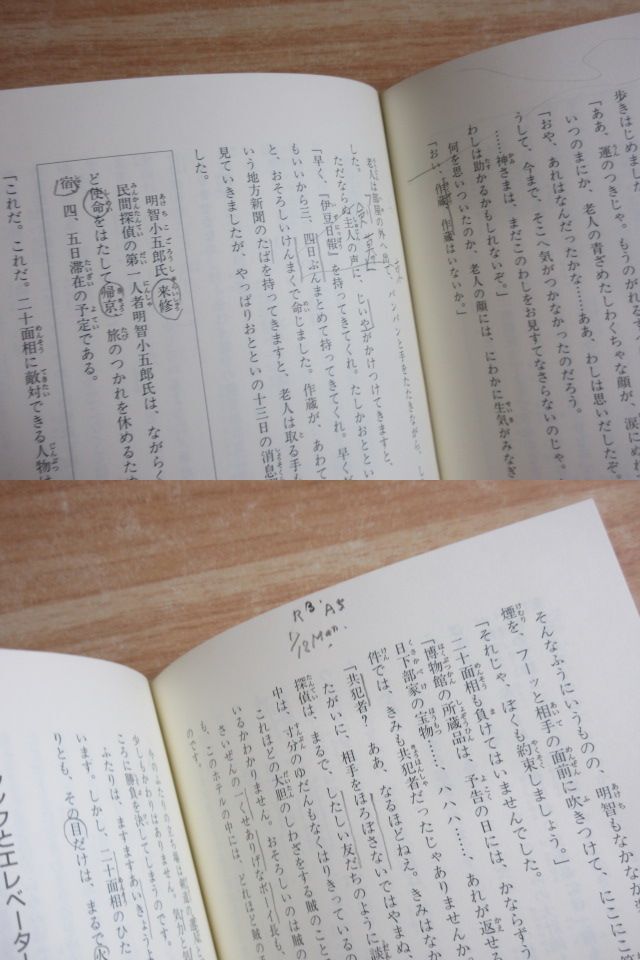 歩きはじめました
「ああ、運のつきじゃ。もうのがれる
いつのまにか、老人の青ざめたしわくちゃな顔が、涙にぬれ
「おや、あれはなんだったかな……ああ、わしは思いだしたぞ。
うして、今まで、そこへ気がつかなかったのだろう。
……神さまは、まだこのわしをお見すてなさらないのじゃ。
わしは助かるかもしれないぞ。」
何を思いついたのか、老人の顔には、にわかに生気がみなぎ
「おい、作蔵、作蔵はいないか。」
老人は部屋の外へ出て、パンパンと手をたたきながら、し
ただならぬ主人の声に、じいやがかけつけてきますと、
「早く、『伊豆日報』を持ってきてくれ。たしかおととい
もいいから三、四日ぶんまとめて持ってきてくれ。早くだ
と、おそろしいけんまくで命じました。作蔵が、あわて
いう地方新聞のたばを持ってきますと、老人は取る手も
見ていきましたが、やっぱりおとといの十三日の消息
した。
明智小五郎氏来修
民間探偵の第一人者明智小五郎氏は、ながらく
ど使命をはたして帰京、旅のつかれを休めるため
宿、四、五日滞在の予定である。
「これだ。これだ。二十面相に敵対できる人物は
R3. A5
1/12 Man.
そんなふうにいうものの、明智もなかなか
煙を、フーッと相手の面前に吹きつけて、にこにこ笑
「それじゃ、ぼくも約束しましょう。」
二十面相も負けてはいませんでした。
「博物館の所蔵品は、予告の日には、かならずう
日下部家の宝物……、ハハハ……、あれが返せる
件では、きみも共犯者だったじゃありませんか。
「共犯者？ ああ、なるほどねえ。きみはなか
たがいに、相手をほろぼさないではやまぬ、
探偵は、まるで、したしい友だちのように談
中は、寸分のゆだんもなくはりきっているの
これほどの大胆のしわざをする賊のこと
いるかわかりません。おそろしいのは賊の
さいぜんの一くせありげなボーイ長も、
も、このホテルの中には、どれほど賊の
のです。
今のふたりの立ち場は剣道の達兎と
少しもかわりはありません。気力と
ころに勝負を決してしまうのです。
ふたりは、ますますあいきょうよ
います。しかし、二十面相のひた
りとも、その日だけは、まるで火
ンクとエレベーター